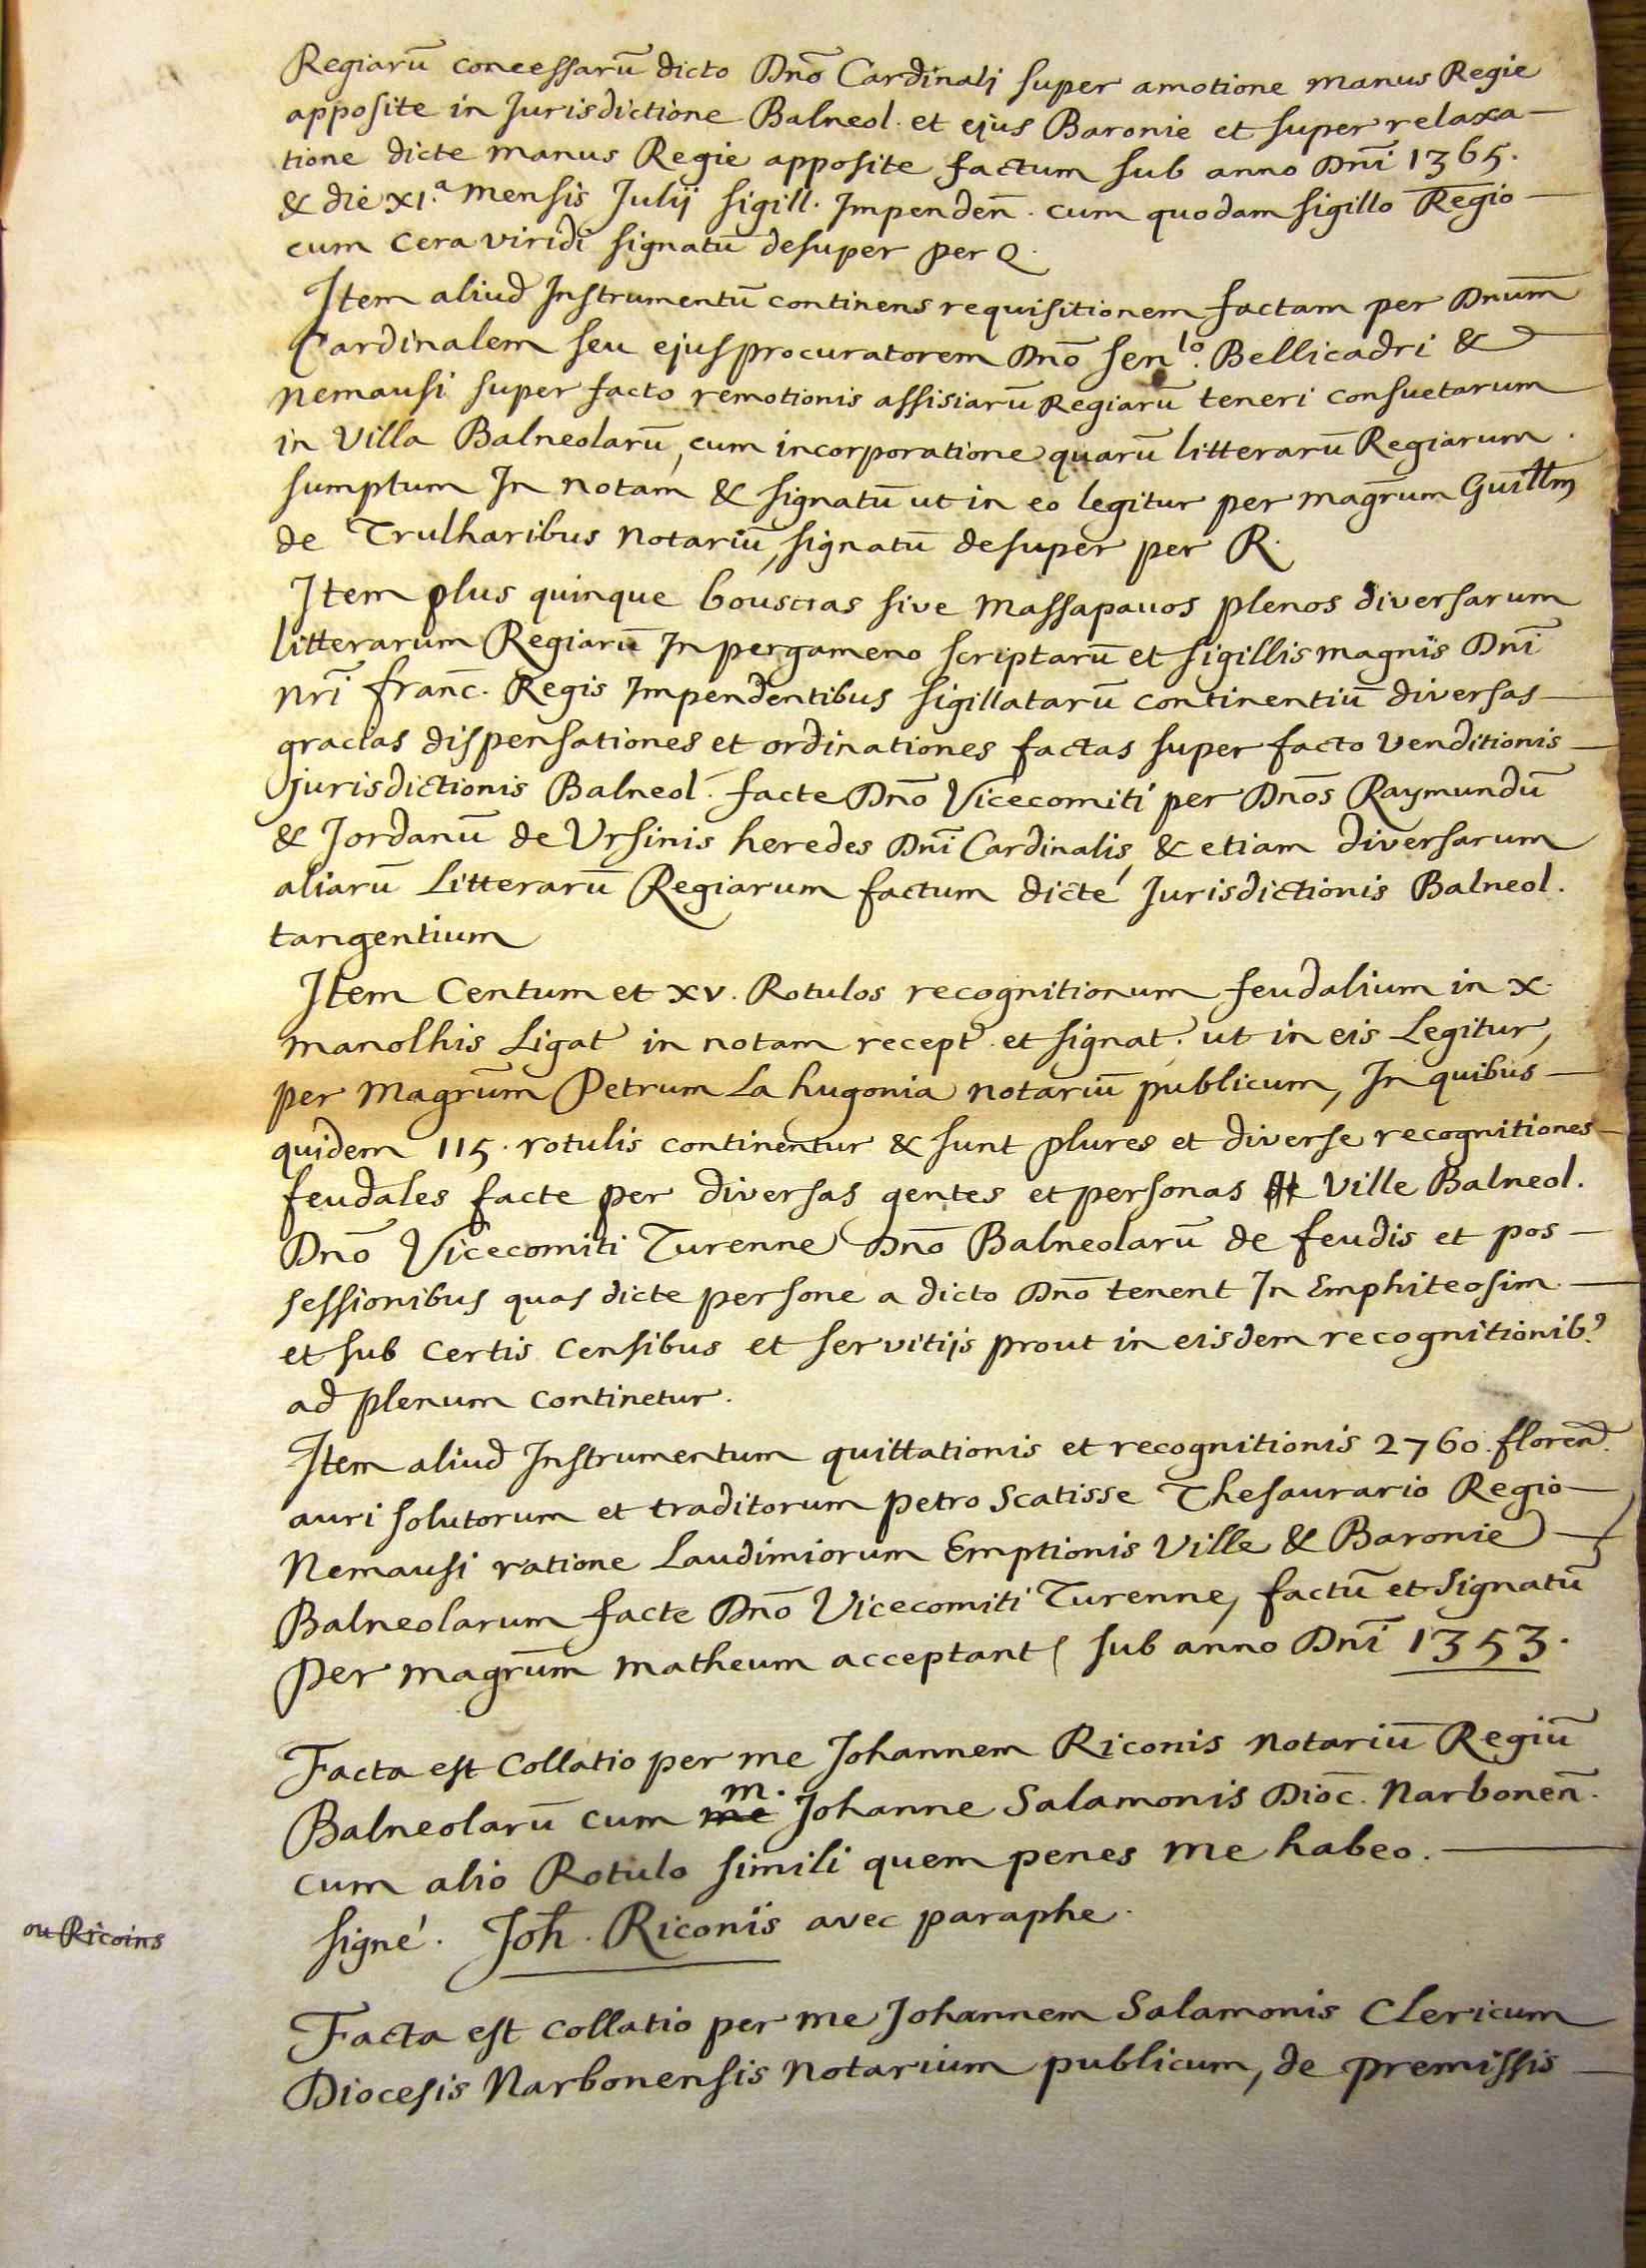 Regiarū concessarū dicto Dnō Cardinali super amotione manus Regie
apposite in Jurisdictione Balneol. et ejus Baronie et super relaxa-
tione dicte manus Regie apposite factum sub anno Dnī 1365.
& die XI.ª mensis Julij sigill. Impendēn. cum quodam sigillo Regio
cum cera viridi signatū desuper per Q.
Item aliud Instrumentū continens requisitionem factam per Dnum̄
Cardinalem seu ejus procuratorem Dnō senˡᵒ. Bellicadri &
Nemausi super facto remotionis assisiarū Regiarū teneri consuetarum
in Villa Balneolarū, cum incorporatione quarū litterarū Regiarum.
sumptum In notam & signatū ut in eo legitur per magr̄um Guillm̄
de Trulharibus Notariū, signatū desuper per R.
Item plus quinque boustias sive massapauos plenos diversarum
litterarum Regiarū In pergameno scriptarū et sigillis magnis Dnī
Nrī franc̄. Regis Impendentibus sigillatarū continentiū diversas
gracias dispensationes et ordinationes factas super facto venditionis
jurisdictionis Balneol. facte Dnō Vicecomiti per Dnōs Raymundū
& Jordanū de Ursinis heredes Dnī Cardinalis, & etiam diversarum
aliarū Litterarū Regiarum factum dicte Jurisdictionis Balneol.
tangentium
Item Centum et XV. Rotulos recognitionum feudalium in X.
manolhis Ligat in notam recept. et signat. ut in eis Legitur,
per Magrūm Petrum La hugonia notariū publicum, In quibus
quidem 115. rotulis continentur & sunt plures et diverse recognitiones
feudales facte per diversas gentes et personas Ville Balneol.
Dnō Vicecomiti Turenne Dnō Balneolarū de feudis et pos-
sessionibus quas dicte persone a dicto Dnō tenent In Emphiteosim
et sub certis censibus et servitijs prout in eisdem recognitionib9
ad plenum continetur.
Item aliud Instrumentum quittationis et recognitionis 2760. floren̄.
auri solutorum et traditorum petro Scatisse Thesaurario Regio
Nemausi ratione Laudimiorum Emptionis Ville & Baronie
Balneolarum facte Dnō Vicecomiti Turenne, factū et signatū
per magrūm matheum acceptant sub anno Dnī 1353.
Facta est Collatio per me Johannem Riconis Notariū Regiū
Balneolarū cum me m. Johanne Salamonis Dioc̄. Narbonen̄.
cum alio Rotulo simili quem penes me habeo.
ou Ricoins
signé. Joh̄. Riconis avec paraphe.
Facta est collatio per me Johannem Salamonis Clericum
Diocesis Narbonensis Notarium publicum, de premissis